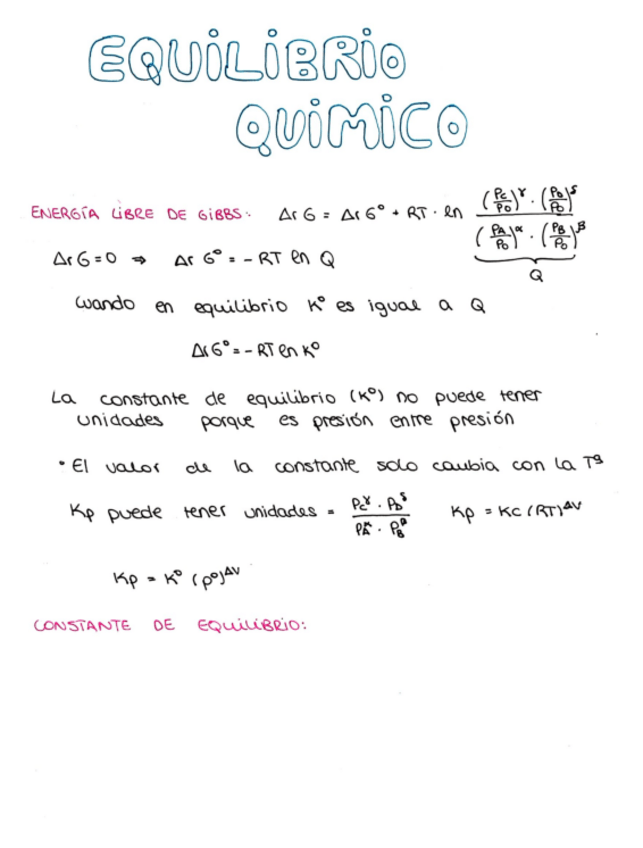 EQUILIBRIO
QUIMICO
ENERGÍA LIBRE DE GIBBS: ΔrG = ΔrG° + RT · ln ((Pc/P0)^γ · (PD/P0)^δ) / ((PA/P0)^α · (PB/P0)^β)
Q
ΔrG=0 ⇒ ΔrG° = - RT ln Q
Cuando en equilibrio K° es igual a Q
ΔrG° = - RT ln K°
La constante de equilibrio (K°) no puede tener
unidades porque es presión entre presión
• El valor de la constante solo cambia con la Tª
Kp puede tener unidades = (Pc^γ · PD^δ) / (PA^α · PB^β) Kp = Kc (RT)^Δν
Kp = K° (P°)^Δν
CONSTANTE DE EQUILIBRIO: